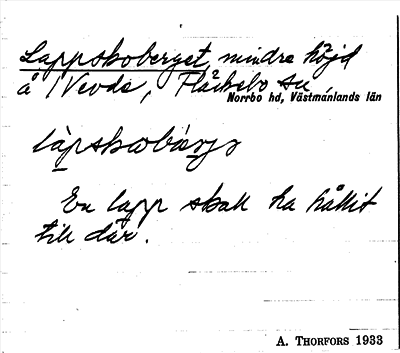 Lappskoberget, mindre höjd
å Nevde, Fläckebo sn
Norrbo hd, Västmanlands län
làpskobæ̀rjə
En lapp skall ha hållit
till där.
A. THORFORS 1933